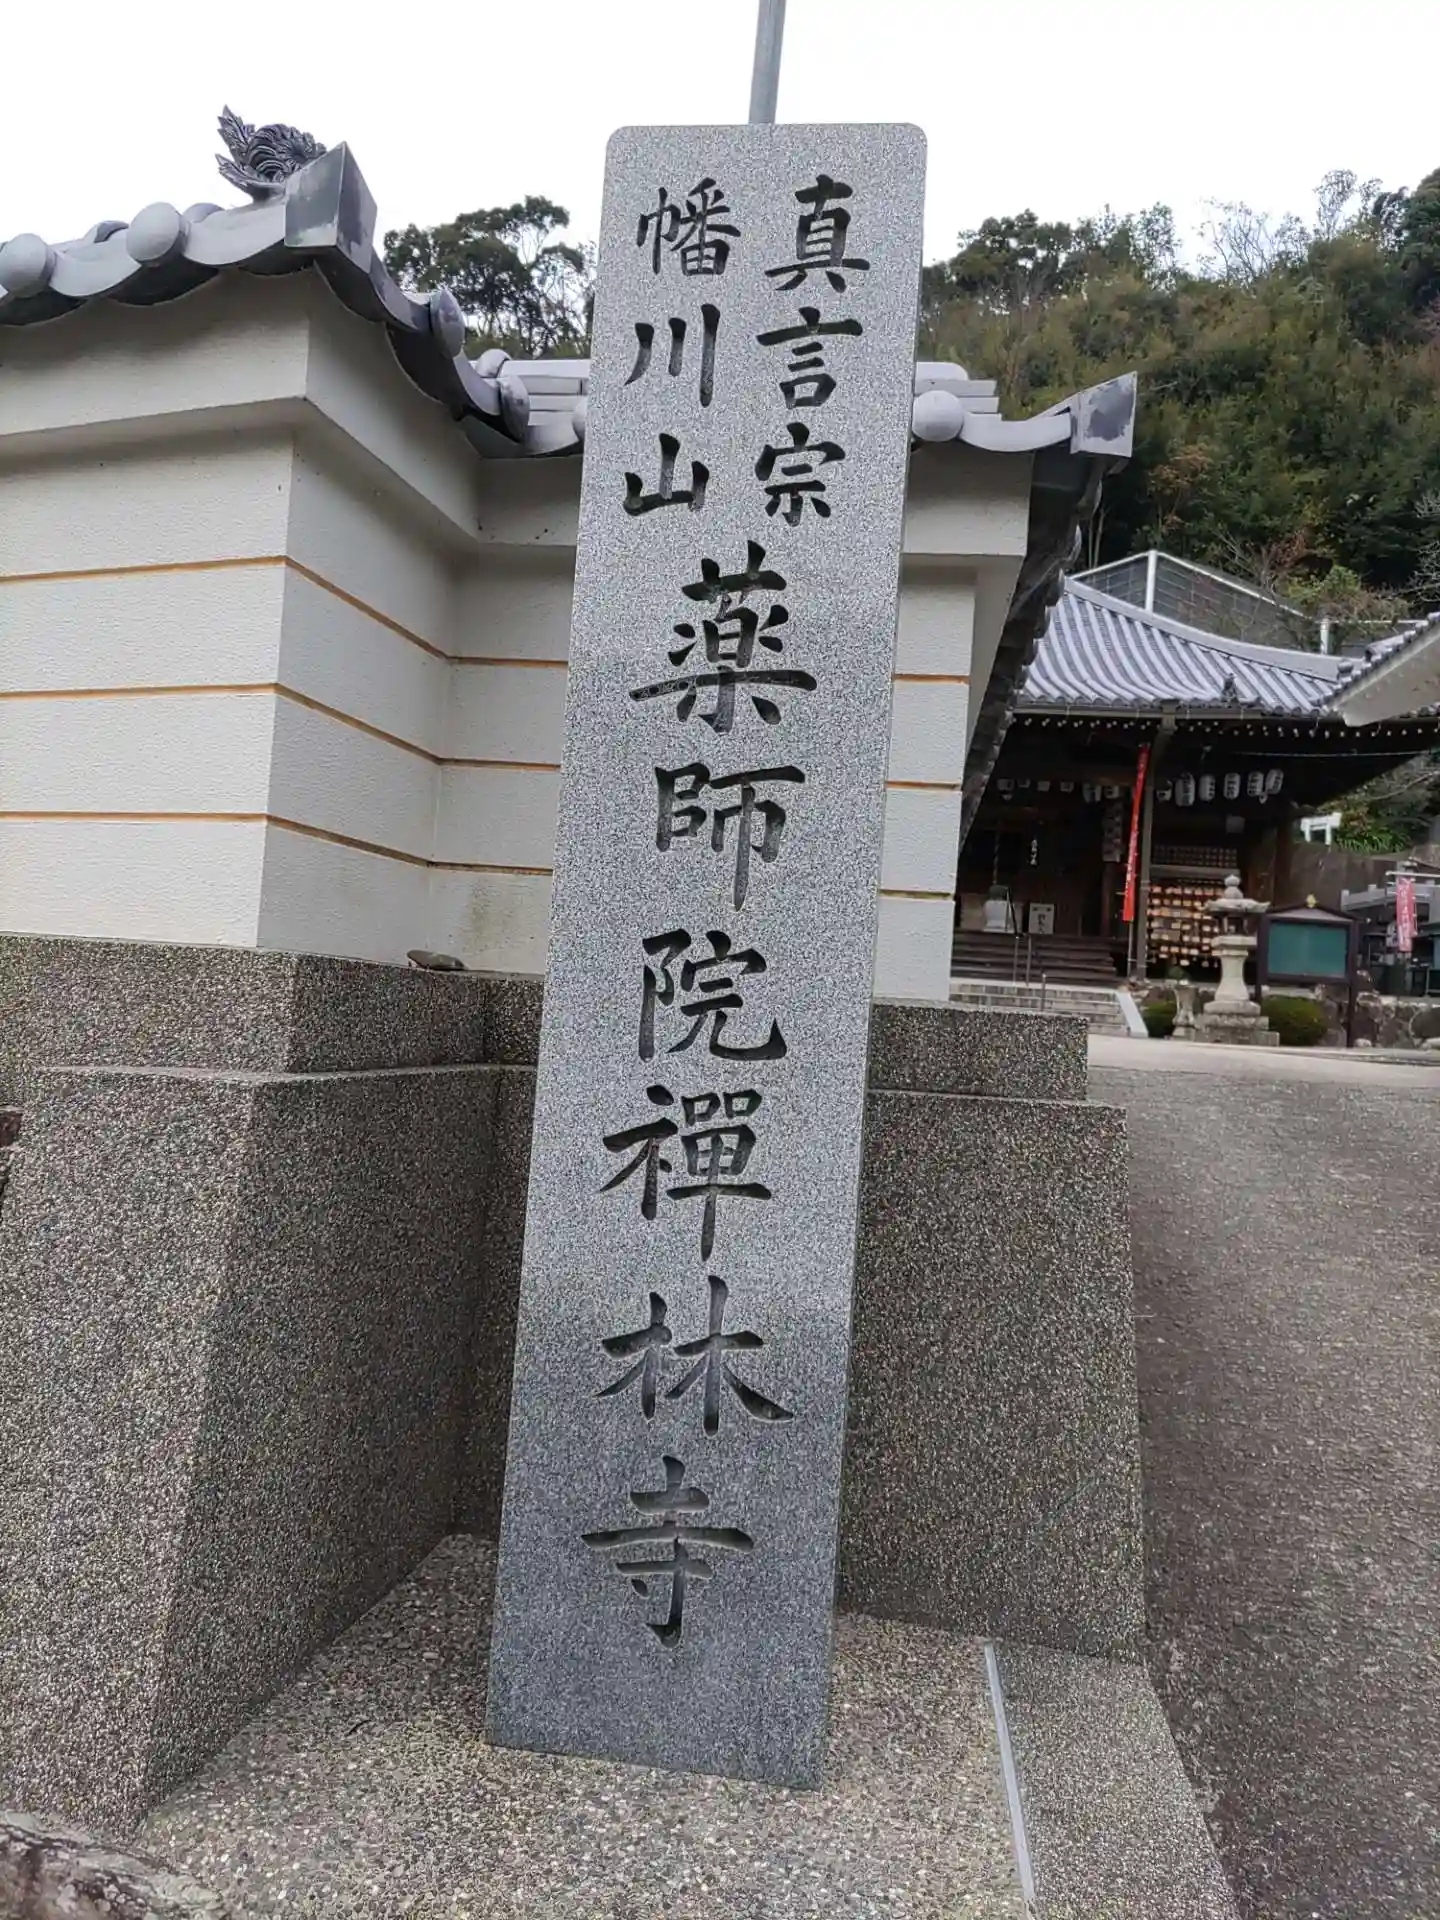 真言宗
幡川山
薬師院禪林寺